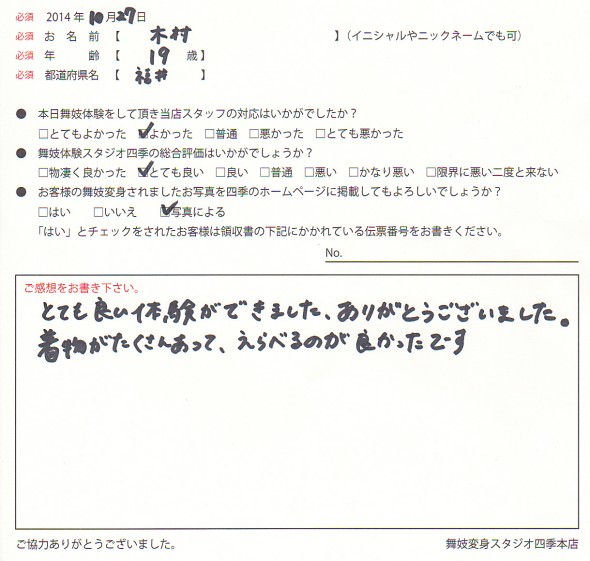 必須 2014年10月27日
必須 お名前【 木村 】（イニシャルやニックネームでも可）
必須 年齢【 19 歳】
必須 都道府県名【 福井 】
● 本日舞妓体験をして頂き当店スタッフの対応はいかがでしたか？
□とてもよかった ☑よかった □普通 □悪かった □とても悪かった
● 舞妓体験スタジオ四季の総合評価はいかがでしょうか？
□物凄く良かった ☑とても良い □良い □普通 □悪い □かなり悪い □限界に悪い二度と来ない
● お客様の舞妓変身されましたお写真を四季のホームページに掲載してもよろしいでしょうか？
□はい □いいえ ☑写真による
「はい」とチェックをされたお客様は領収書の下記にかかれている伝票番号をお書きください。
No.
ご感想をお書き下さい。
とても良い体験ができました、ありがとうございました。
着物がたくさんあって、えらべるのが良かったです
ご協力ありがとうございました。 舞妓変身スタジオ四季本店